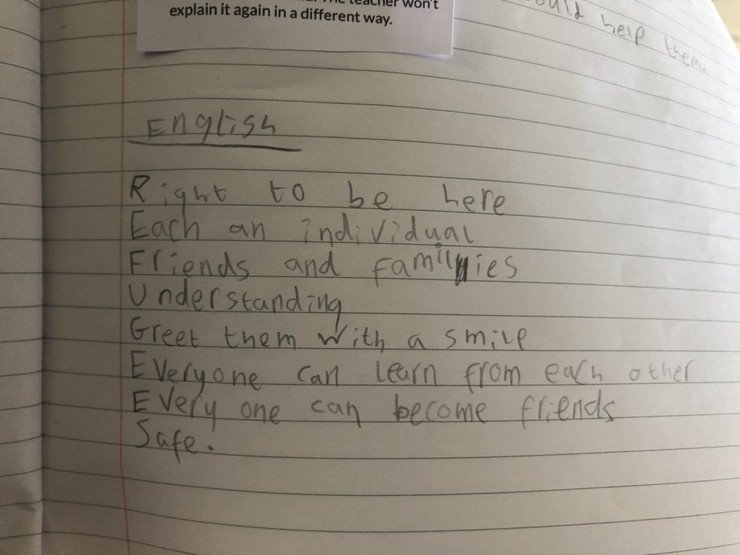 teacher won't
explain it again in a different way.
help them.
English
Right to be here
Each an individual
Friends and families
Understanding
Greet them with a smile
Everyone can learn from each other
Every one can become friends
Safe.